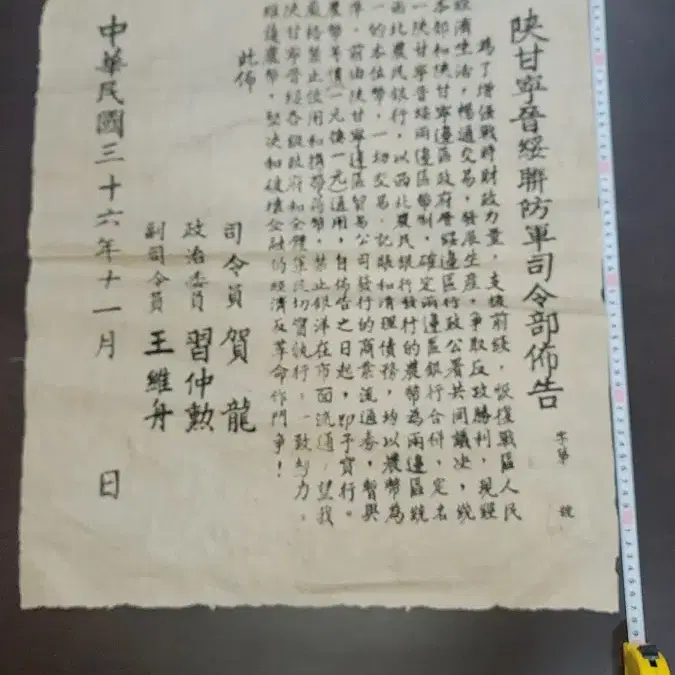 陝甘寧晉綏聯防軍司令部佈告
字第 號
為了增强戰時財政力量，支援前綫，恢復戰區人民
經濟生活，暢通交易，發展生產，爭取反攻勝利，現經
本部和陝甘寧邊區政府晉綏邊區行政公署共同議决，統
一陝甘寧晉綏兩邊區幣制，確定兩邊區銀行合併，定名
西北農民銀行，以西北農民銀行發行的農幣為兩邊區統
一的本位幣，一切交易、記賬和清理債務，均以農幣為
準，前由陝甘寧邊區貿易公司發行的商業流通券，暫與
農幣等價（一元換一元）通用，自佈告之日起，即予實行。
嚴格禁止使用和携帶蔣幣，禁止銀洋在市面流通，望我
陝甘寧晉綏各級政府和全體軍民切實執行，一致努力，
維護農幣，堅决和破壞金融的經濟反革命作鬥爭！
此佈
司令員 賀龍
政治委員 習仲勲
副司令員 王維舟
中華民國三十六年十一月 日